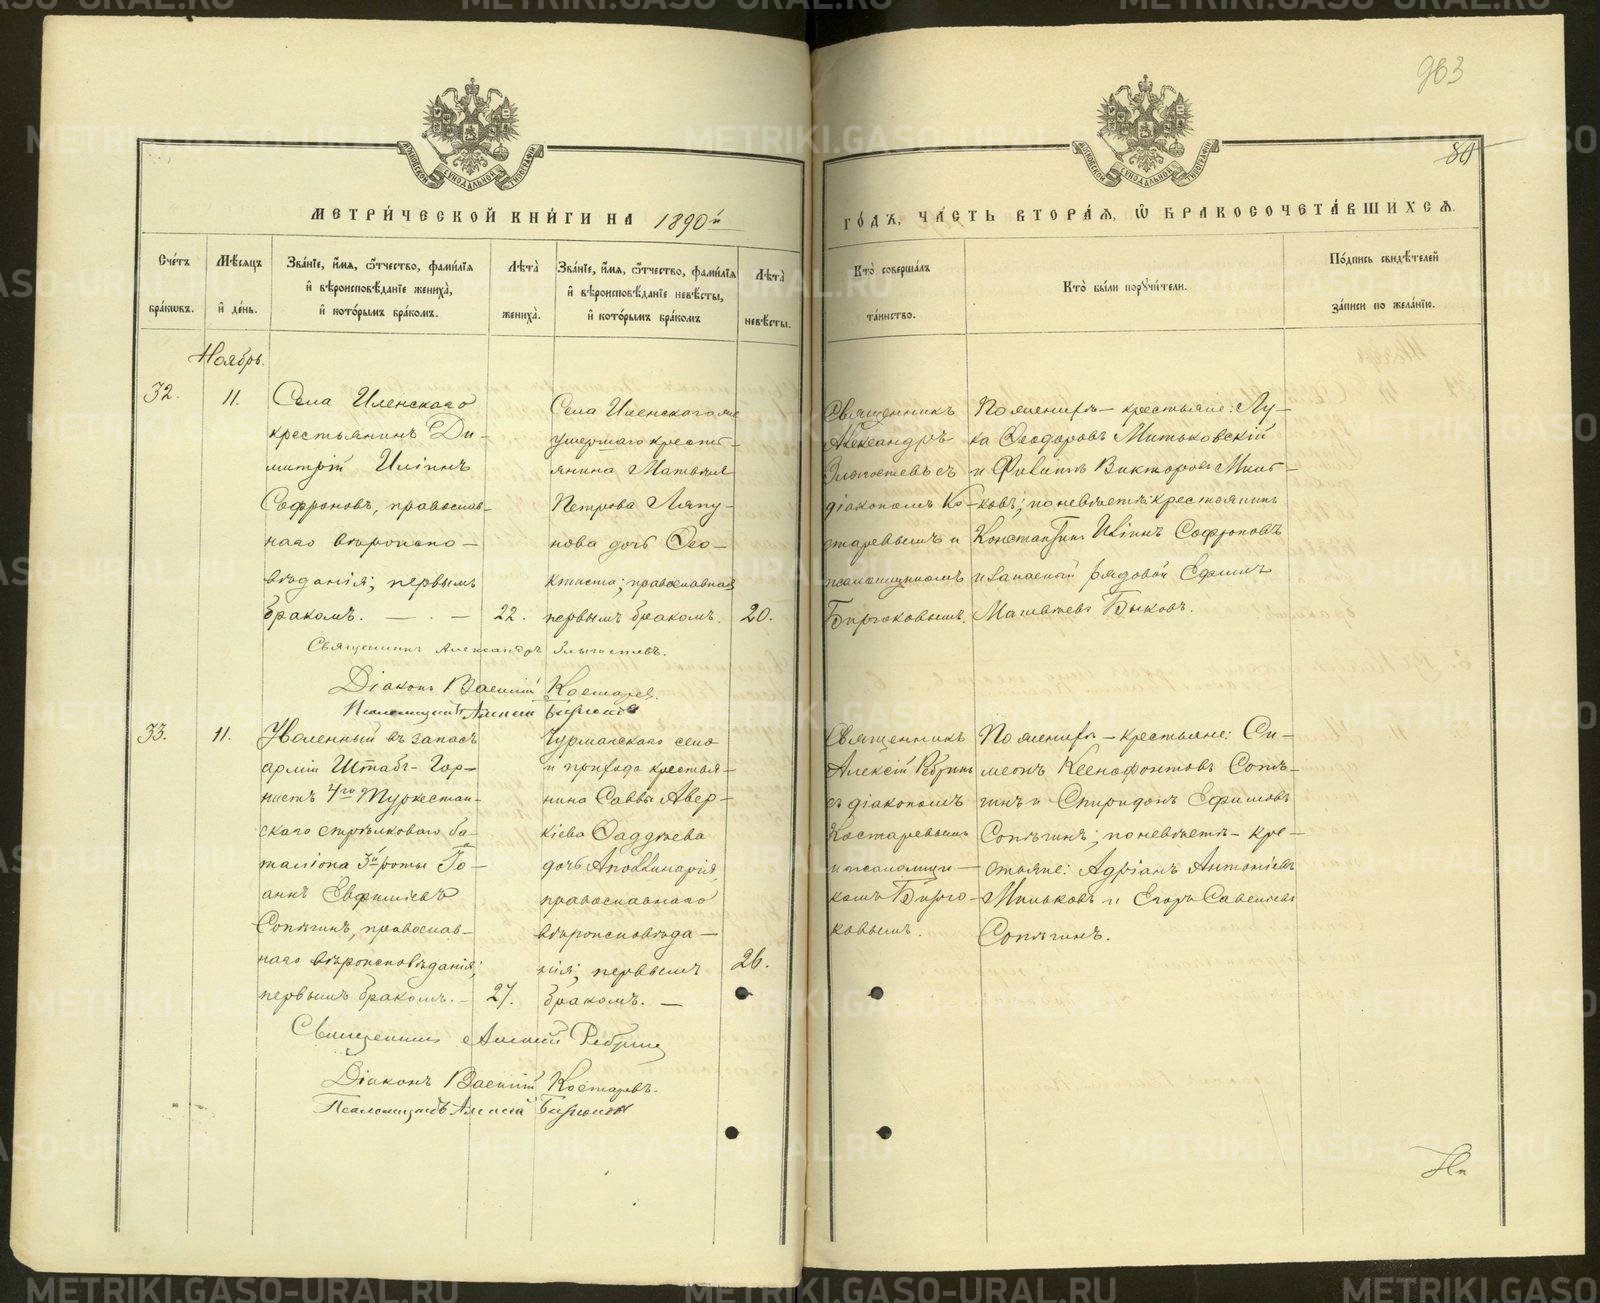 963
80
МЕТРИ́ЧЕСКОЙ КНИ́ГИ НА 1890й
ГО́ДЪ, ЧА́СТЬ ВТОРА́Я, Ѡ БРАКОСОЧЕТА́ВШИХСЯ.
МОСКОВСКОЙ СѴНОДАЛЬНОЙ ТИПОГРАФІИ
МОСКОВСКОЙ СѴНОДАЛЬНОЙ ТИПОГРАФІИ
Сче́тъ бра́кѡвъ.
Мѣ́сяцъ и҆ де́нь.
Зва́нїе, и҆́мя, ѻ҆́тчество, фами́лїя и҆ вѣроисповѣ́данїе жениха̀, и҆ кото́рымъ бра́комъ.
Лѣта̀ жениха̀.
Зва́нїе, и҆́мя, ѻ҆́тчество, фами́лїя и҆ вѣроисповѣ́данїе невѣ́сты, и҆ кото́рымъ бра́комъ
Лѣта̀ невѣ́сты.
Кто̀ соверша́лъ та́инство.
Кто̀ бы́ли поручи́тели.
По́дпись свидѣ́телей за́писи по жела́нїю.
Ноябрь.
32.
11.
Села Иленскаго
крестьянинъ Ди-
митрій Иліинъ
Софроновъ, православ-
наго вѣроиспо-
вѣданія; первымъ
бракомъ.
22.
Села Иленскаго
умершаго кресть-
янина Матвѣя
Петрова Ляпу-
нова дочь Ѳео-
ктиста; православная
первымъ бракомъ.
20.
Священникъ
Александръ
Злыгостевъ съ
діакономъ Ко-
старевымъ и
псаломщикомъ
Бирюковымъ.
По женихѣ – крестьяне: Лу-
ка Ѳеодоровъ Митьковскій
и Филиппъ Викторовъ Мить-
ковъ; по невѣстѣ: крестьянинъ
Константинъ Иліинъ Софроновъ
и запасный рядовой Ефимъ
Матвѣевъ Быковъ.
Священникъ Александръ Злыгостевъ.
Діаконъ Василій Костарев.
Псаломщикъ Алексій Бирюковъ
33.
11.
Уволенный въ запасъ
арміи Штабъ-Гор-
нистъ 4го Туркестан-
скаго стрѣлковаго ба-
таліона 3й роты Іо-
аннъ Евфиміевъ
Сопѣгинъ, православ-
наго вѣроисповѣданія;
первымъ бракомъ.
27.
Чурманскаго села
и прихода крестья-
нина Саввы Авер-
кіева Ѳаддѣева
дочь Аполлинарія,
православнаго
вѣроисповѣда-
нія; первымъ
бракомъ.
26.
Священникъ
Алексій Ребринъ
съ діакономъ
Костаревымъ
и псаломщи-
комъ Бирю-
ковымъ.
По женихѣ – крестьяне: Си-
меонъ Ксенофонтовъ Сопѣ-
гинъ и Спиридонъ Ефимовъ
Сопѣгинъ; по невѣстѣ – кре-
стьяне: Адріанъ Антоніевъ
Миньковъ и Егоръ Савельевъ
Сопѣгинъ.
Священникъ Алексій Ребринъ
Діаконъ Василій Костаревъ.
Псаломщикъ Алексій Бирюковъ
METRIKI.GASO-URAL.RU